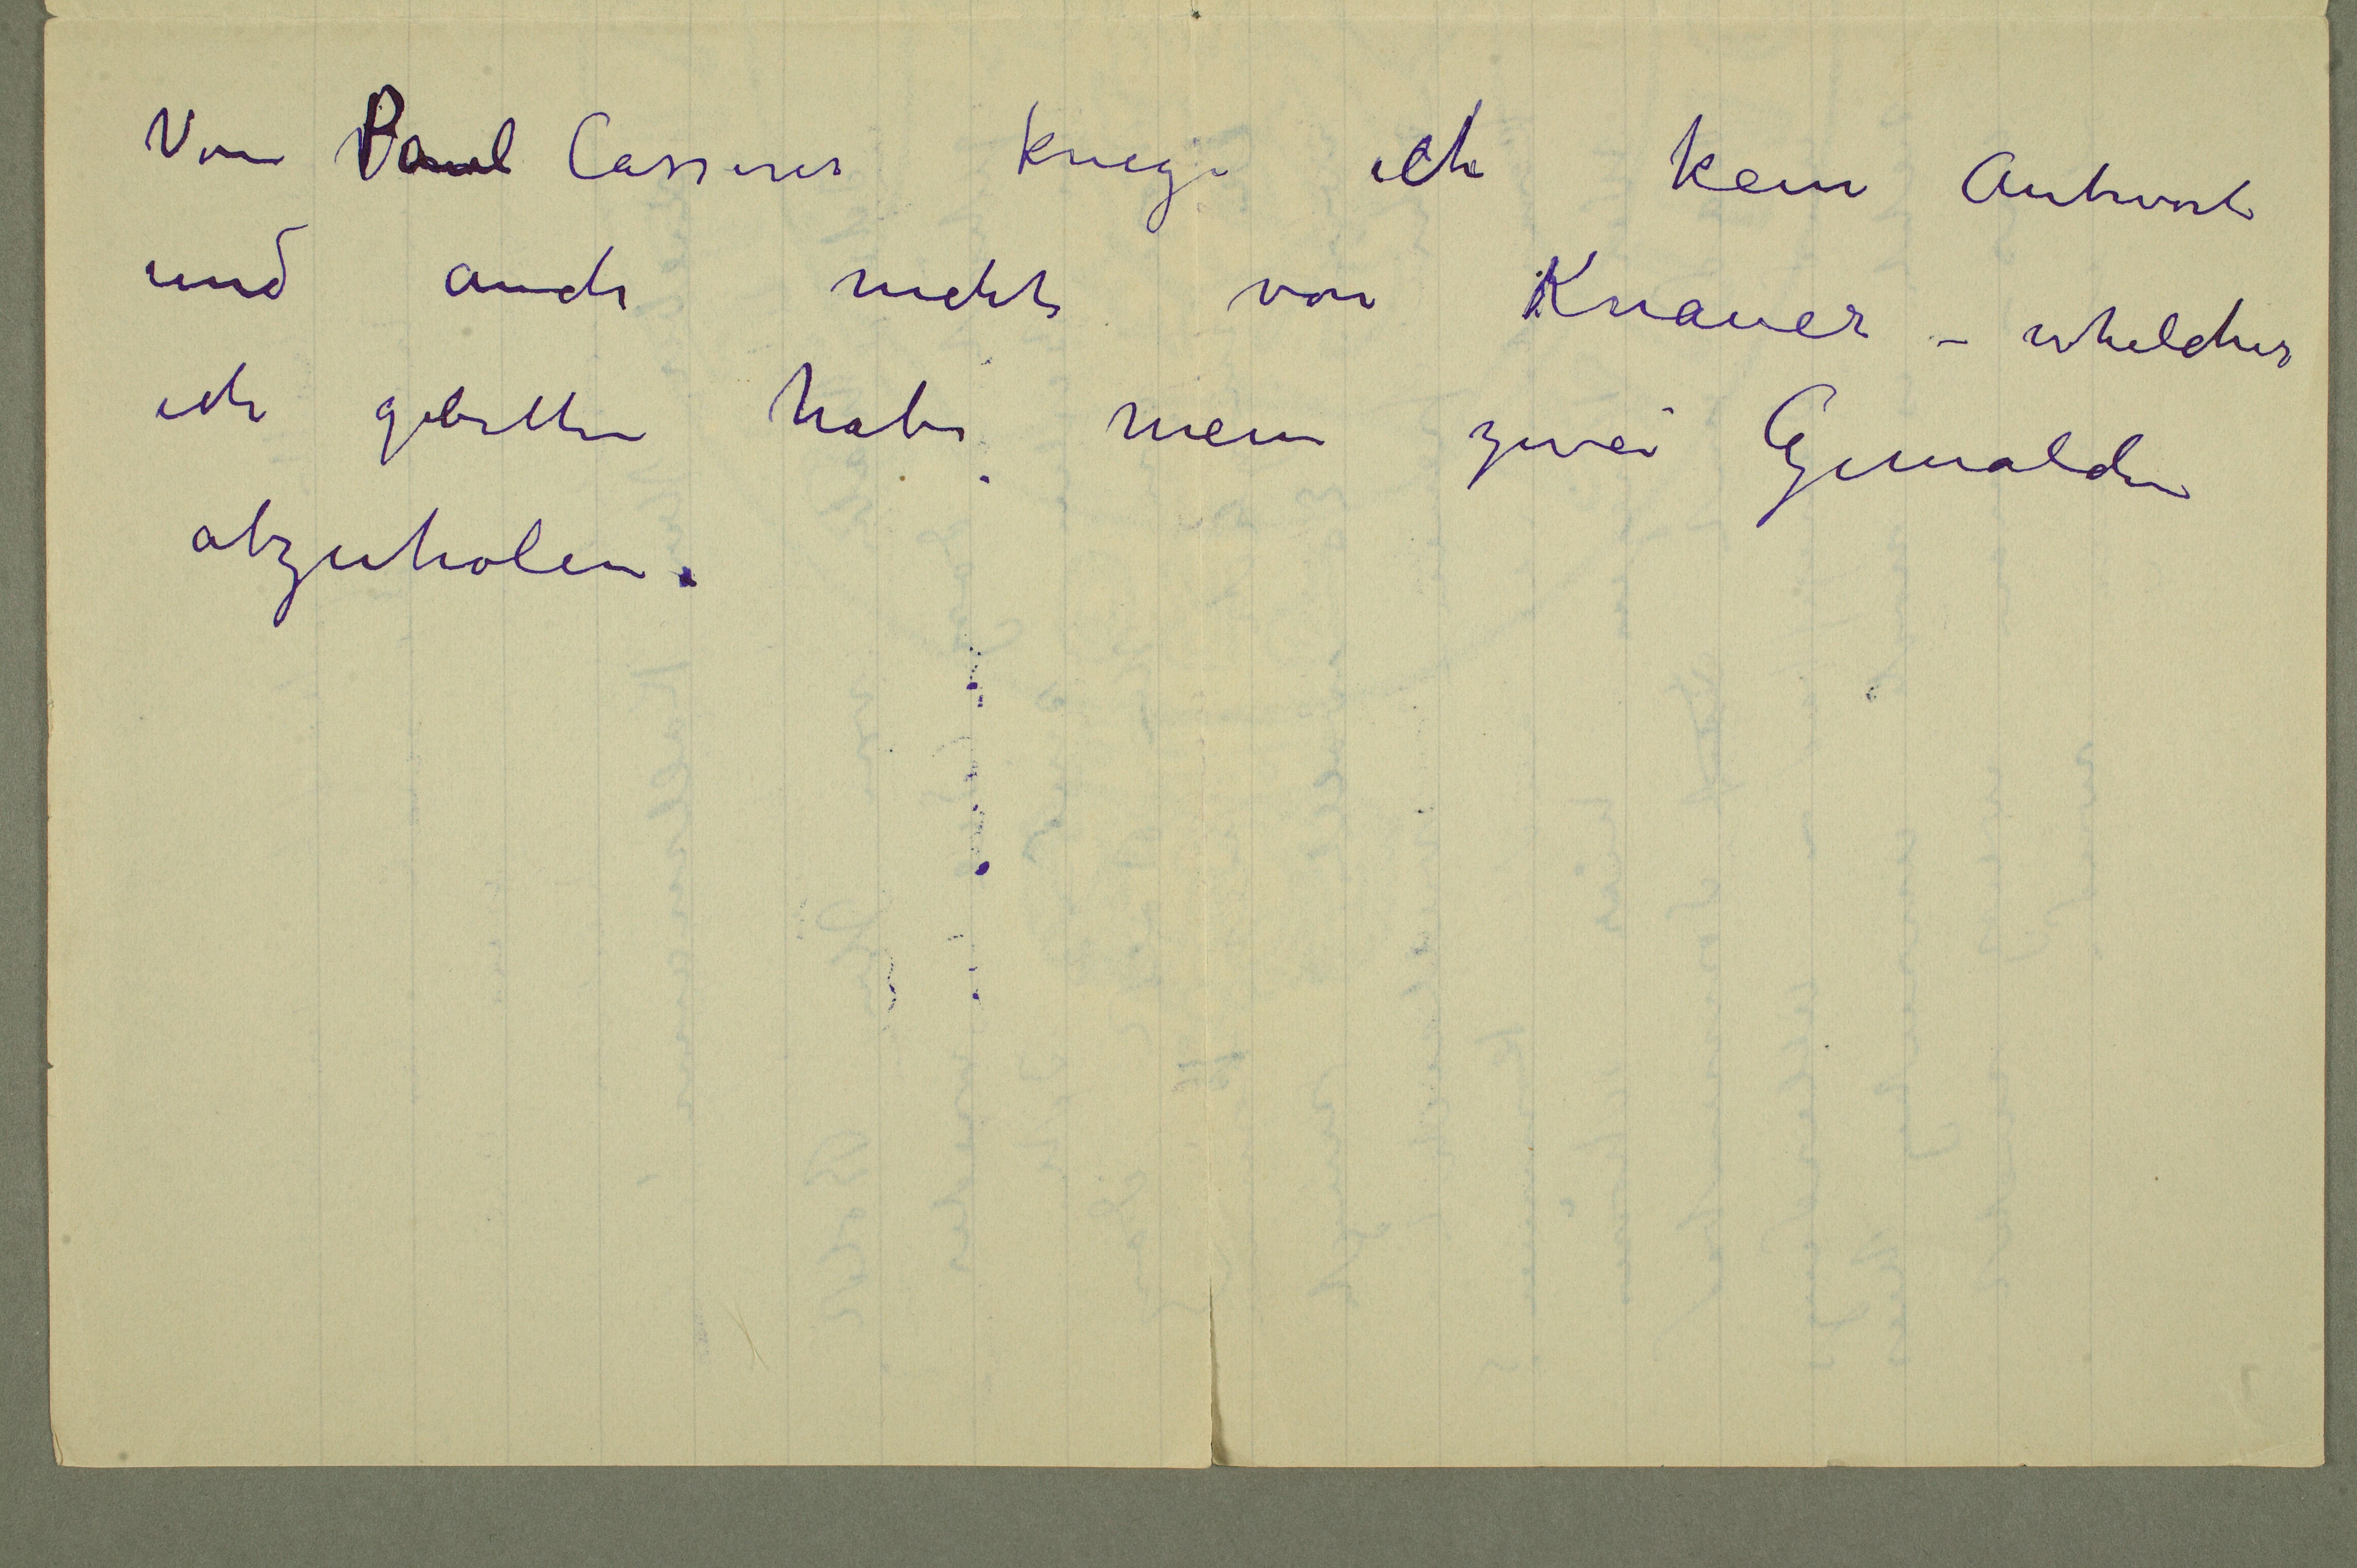 Von Paul Cassirer kriege ich kein Antwort
und auch nicht von Knauer – whelcher
ich gebitten habe mein zwei Gemälden
abzuholen.